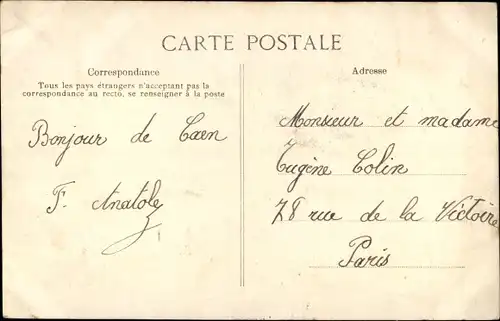 CARTE POSTALE
Correspondance
Tous les pays étrangers n'acceptant pas la
correspondance au recto, se renseigner à la poste
Bonjour de Caen
F. Anatole
Adresse
Monsieur et madame
Eugène Colin
78 rue de la Victoire
Paris